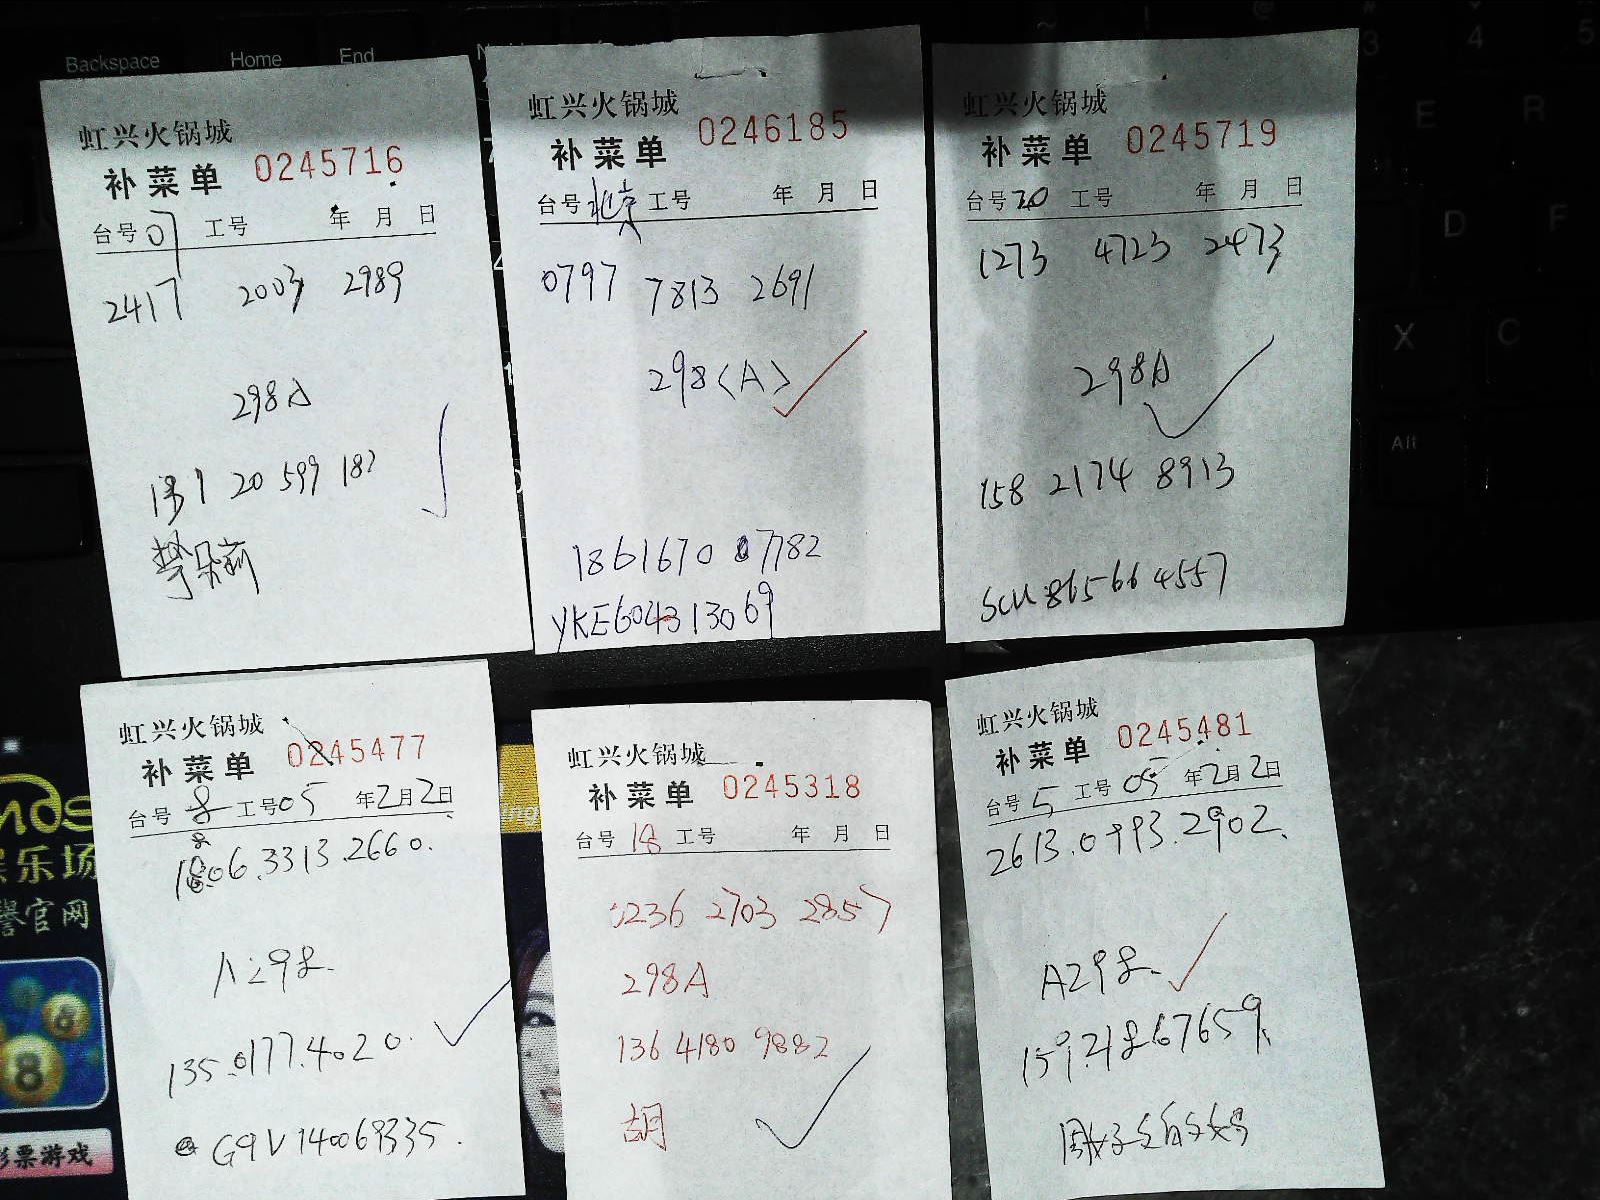 Backspace Home End
虹兴火锅城
补菜单 0245716
台号 07 工号 年 月 日
2417 2003 2989
298A
20 599 182
虹兴火锅城
补菜单 0246185
台号 北京 工号 年 月 日
0797 7813 2691
298<A>
1861670 7782
YKE604313069
虹兴火锅城
补菜单 0245719
台号 20 工号 年 月 日
1273 4723 2473
298A
158 2174 8913
SCU 865664557
E R
D F
X C
Alt
虹兴火锅城
补菜单 0245477
台号 8 工号 05 年2月2日
1806.3313.2660.
A298.
135.0177.4020.
G9V140069335.
虹兴火锅城
补菜单 0245318
台号 18 工号 年 月 日
0236 2703 2857
298A
136 4180 9882
胡
虹兴火锅城
补菜单 0245481
台号 5 工号 05 年2月2日
2613.0993.2902.
A298.
159.21867659.
乐场
官网
8
票游戏